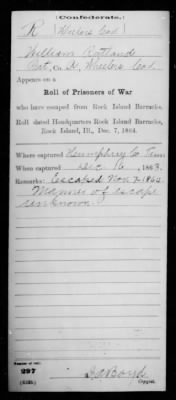 (Confederate.)
R (Wheelers Cav.)
William Rutland
Pvt, Co. A, Wheelers Cav.
Appears on a
Roll of Prisoners of War
who have escaped from Rock Island Barracks.
Roll dated Headquarters Rock Island Barracks,
Rock Island, Ill., Dec. 7, 1864.
Where captured Humphry Co Tenn
When captured Dec 16, 1863.
Remarks: Escaped Nov 7 1864
Manner of escape
unknown.
Number of roll:
297
Copyist.